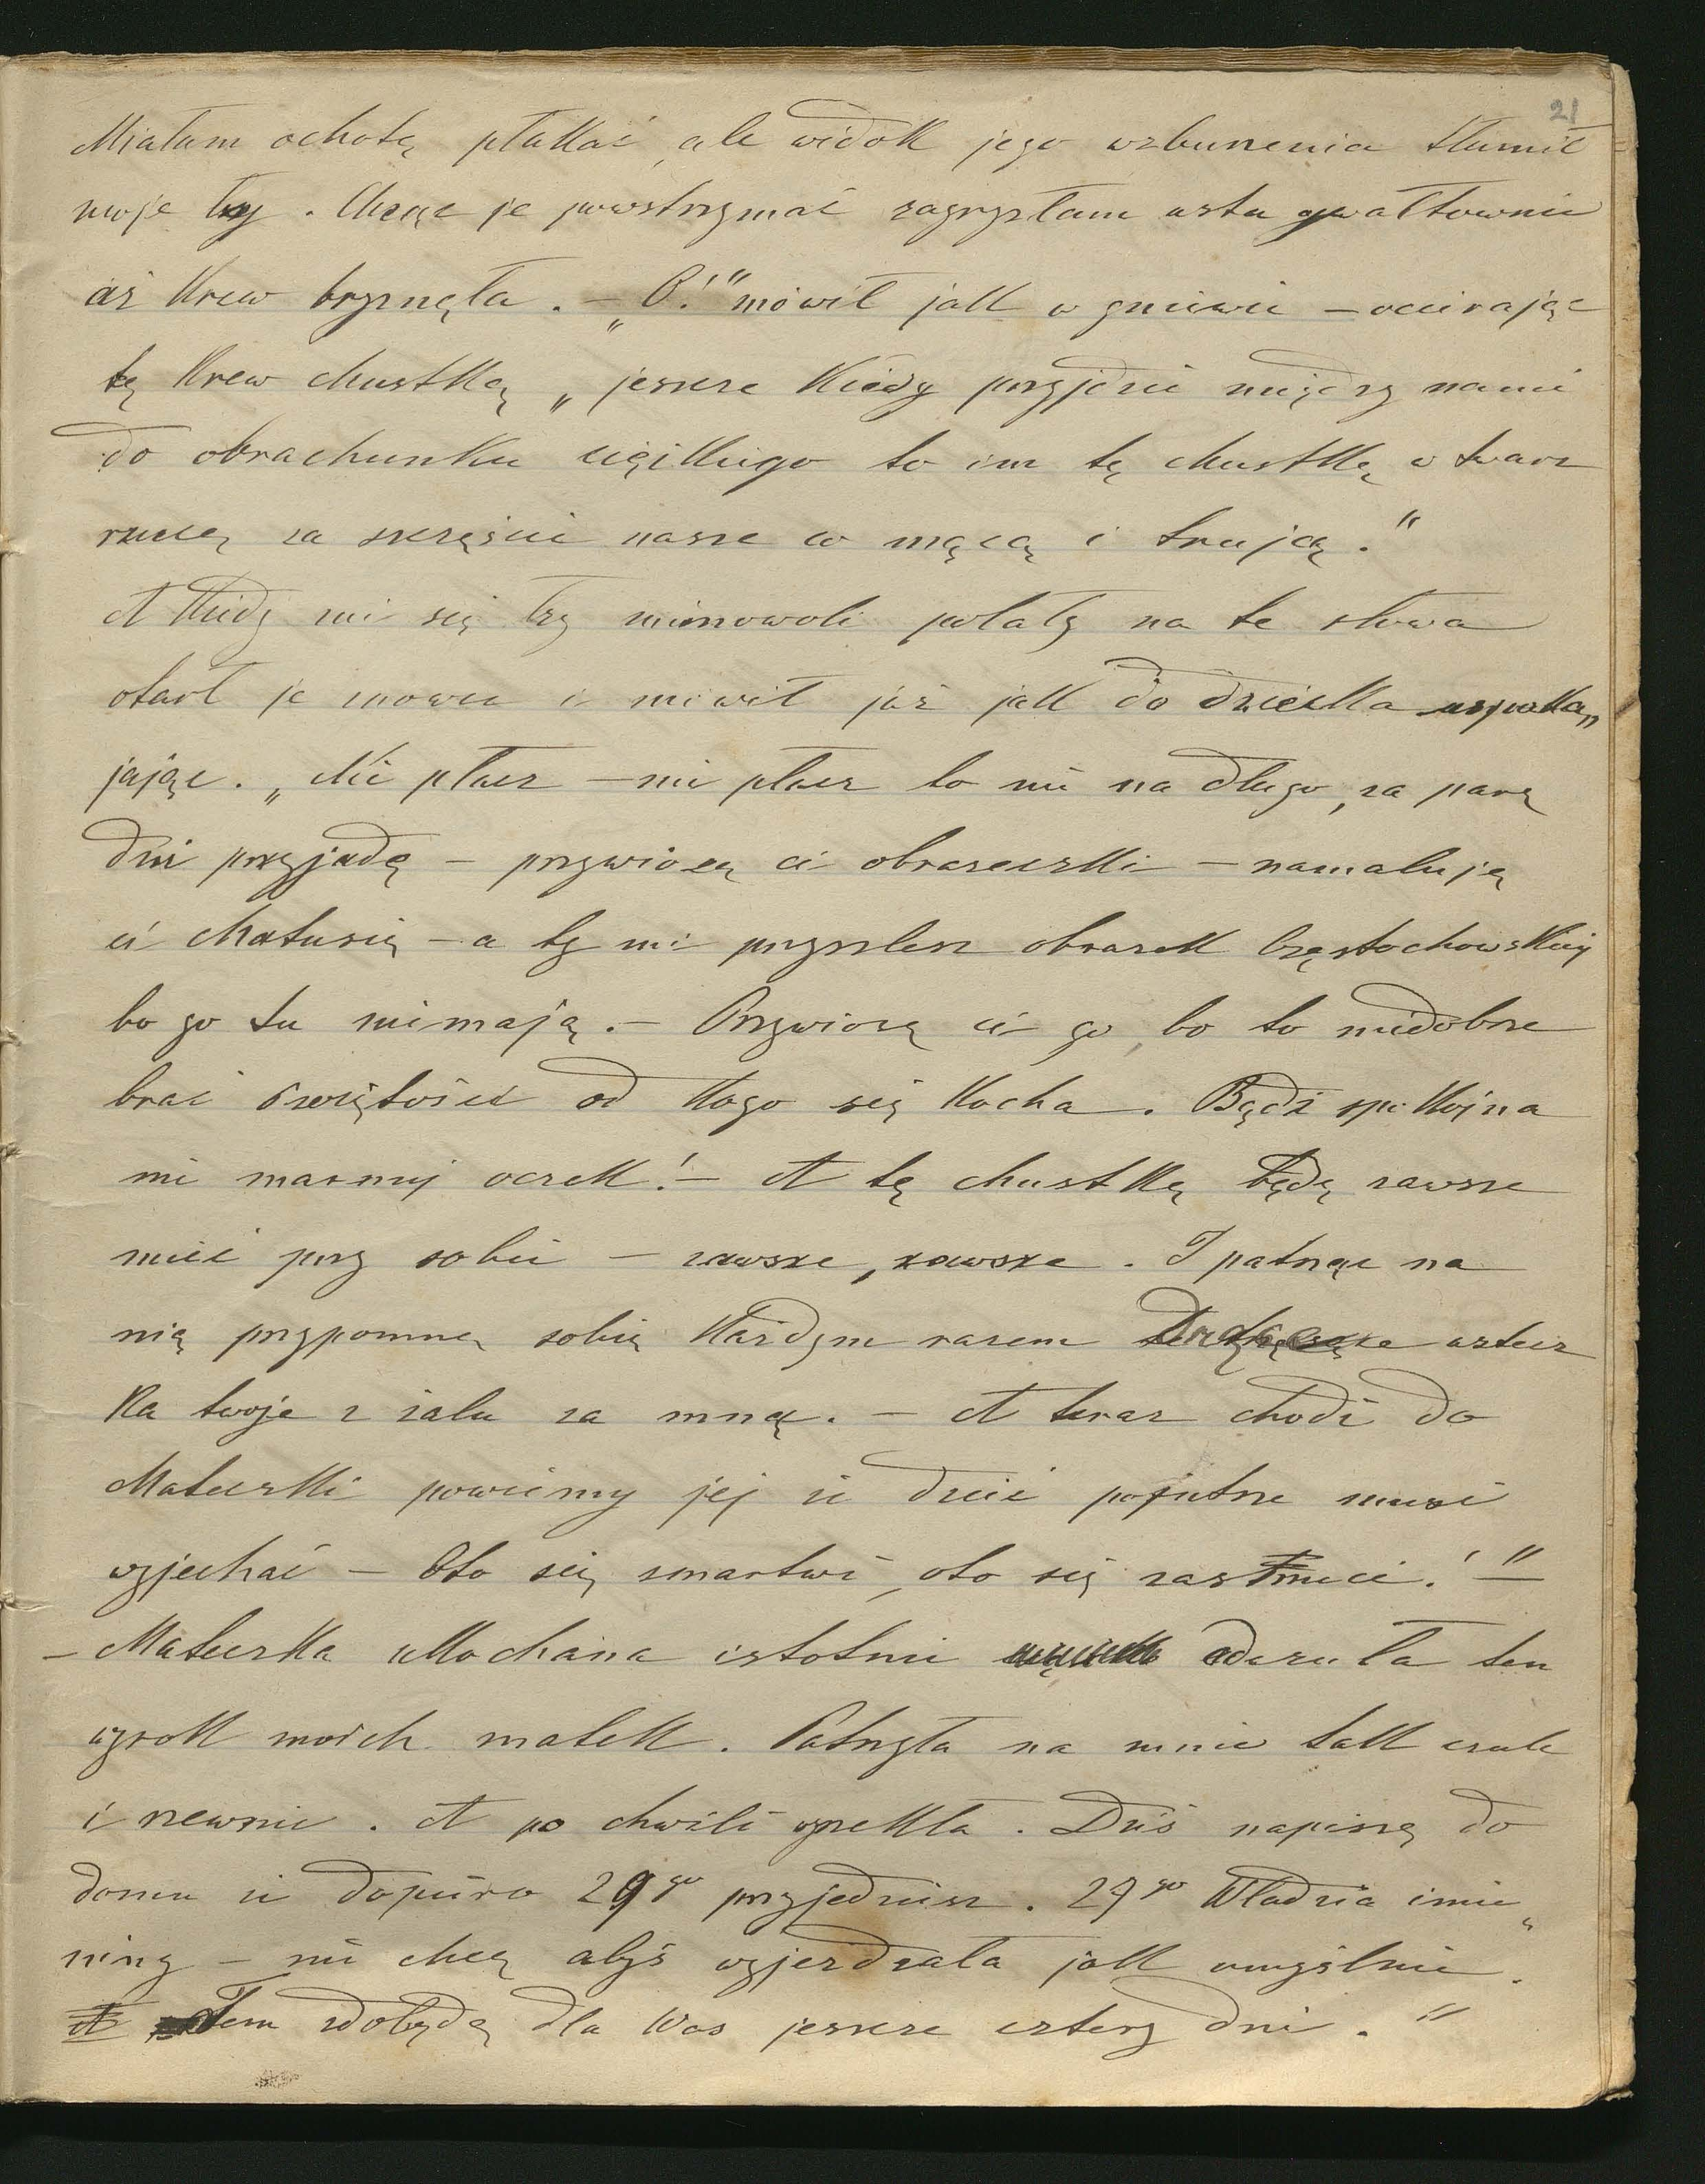 21
Miałam ochotę płakać, ale widok jego wzburzenia tłumił
moje łzy. Chcąc je powstrzymać zagryzłam usta gwałtownie
aż krew bryznęła. — „O!" mówił jak w gniewie — ocierając
tę krew chustką „jeszcze kiedy przyjdzie między nami
do obrachunku ciężkiego to im tę chustkę w twarz
rzucę za szczęście nasze co mącą i trują."
A kiedy mi się łzy mimowoli polały na te słowa
otarł je znowu i mówił już jak do dziecka uspoka„
jając. „Nie płacz — nie płacz to nie na długo, za parę
dni przyjadę — przywiozę ci obrazeczki — namaluję
ci Matusię — a ty mi przyszlesz obrazek Częstochowskiej
bo go tu niemają. — Przywiozę ci go, bo to niedobrze
brać świętości od kogo się kocha. Bądź spokojna
nie marnuj oczek! — A tę chustkę będę zawsze
mieć przy sobie — zawsze, zawsze. I patrząc na
nią przypomnę sobie każdym razem drżące ustecz
ka twoje z żalu za mną. — A teraz chodź do
Mateczki powiemy jej że dzieć pojutrze musi
wyjechać — Oto się zmartwi, oto się zasmuci!" —
— Mateczka ukochana istotnie odczuła ten
wyrok moich matek. Patrzyła na mnie tak czule
i rzewnie. A po chwili wyrzekła. Dziś napiszę do
domu że dopiero 29go przyjedziesz. 27go Władzia imie„
niny — nie chcę abyś wyjeżdżała jak umyślnie.
Tem zdobędę dla Was jeszcze cztery dni."